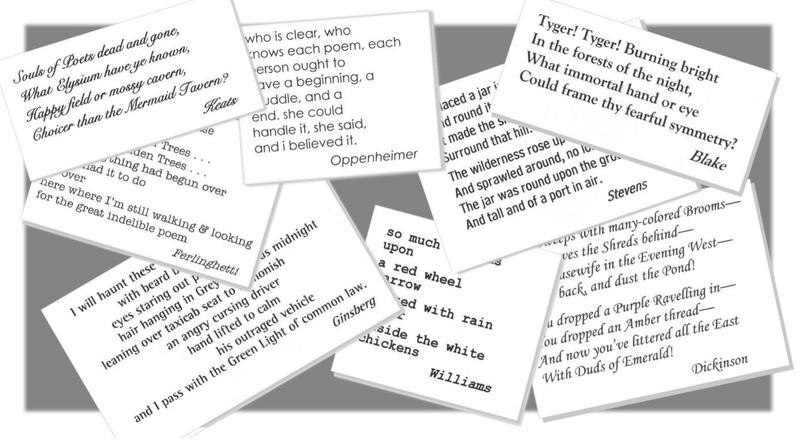 Souls of Poets dead and gone,
What Elysium have ye known,
Happy field or mossy cavern,
Choicer than the Mermaid Tavern?
Keats
who is clear, who
knows each poem, each
person ought to
have a beginning, a
muddle, and a
end. she could
handle it, she said,
and i believed it.
Oppenheimer
Tyger! Tyger! Burning bright
In the forests of the night,
What immortal hand or eye
Could frame thy fearful symmetry?
Blake
placed a jar
nd round it
t made the
Surround that hill.
The wilderness rose up
And sprawled around, no
The jar was round upon the
And tall and of a port in air.
Stevens
Trees . . .
den Trees . . .
thing had begun over
had it to do
over
here where I'm still walking & looking
for the great indelible poem
Ferlinghetti
I will haunt these midnight
with beard
eyes staring out
hair hanging in Grey
leaning over taxicab seat to admonish
an angry cursing driver
hand lifted to calm
his outraged vehicle
and I pass with the Green Light of common law.
Ginsberg
so much
upon
a red wheel
arrow
ed with rain
side the white
chickens
Williams
weeps with many-colored Brooms—
ves the Shreds behind—
usewife in the Evening West—
back, and dust the Pond!
u dropped a Purple Ravelling in—
ou dropped an Amber thread—
And now you've littered all the East
With Duds of Emerald!
Dickinson